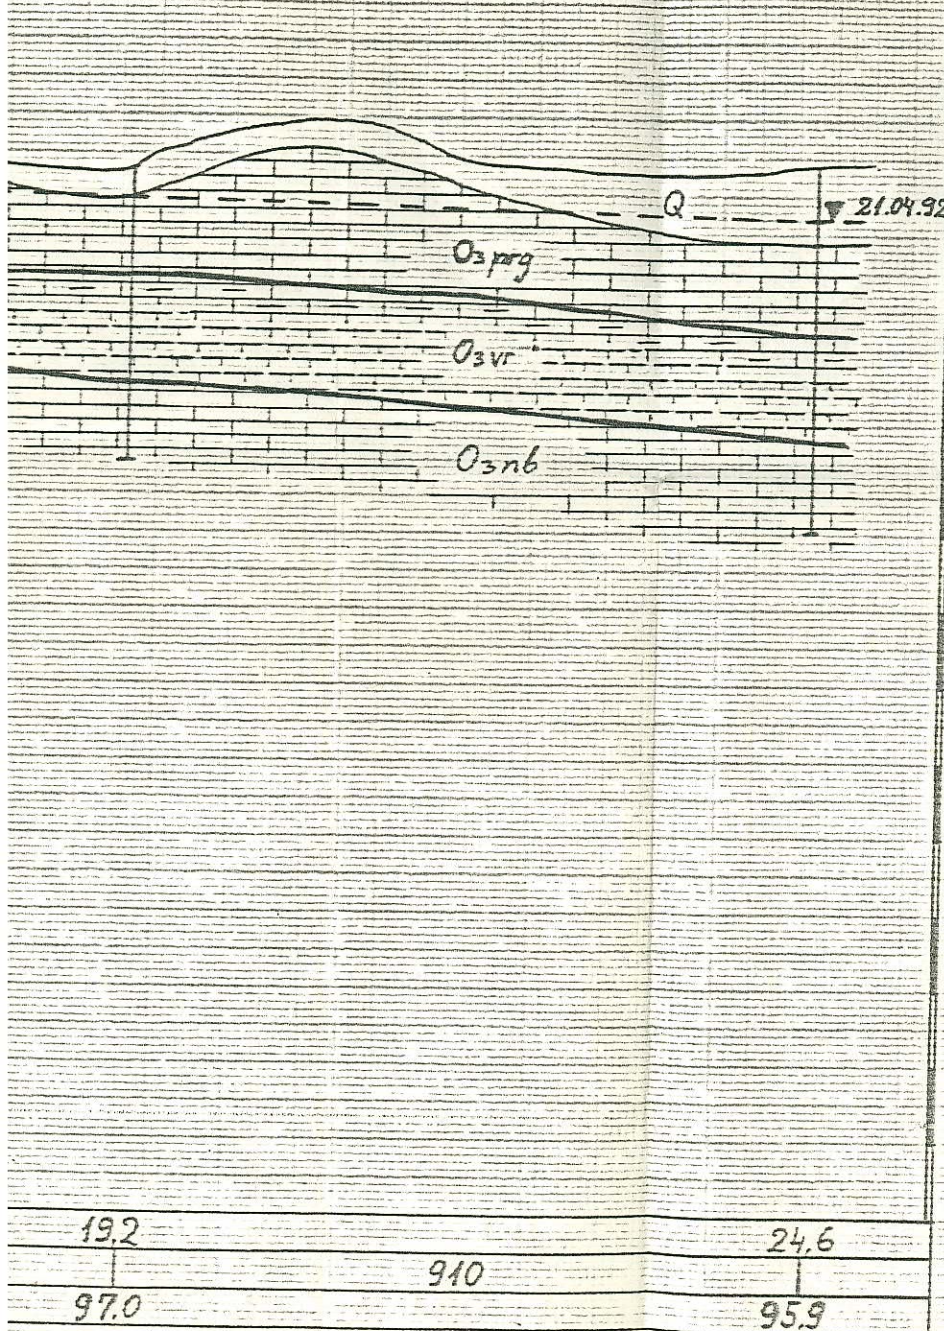 Q
21.04.92
O₃prg
O₃vr
O₃nb
19.2 24.6
910
97.0 95.9